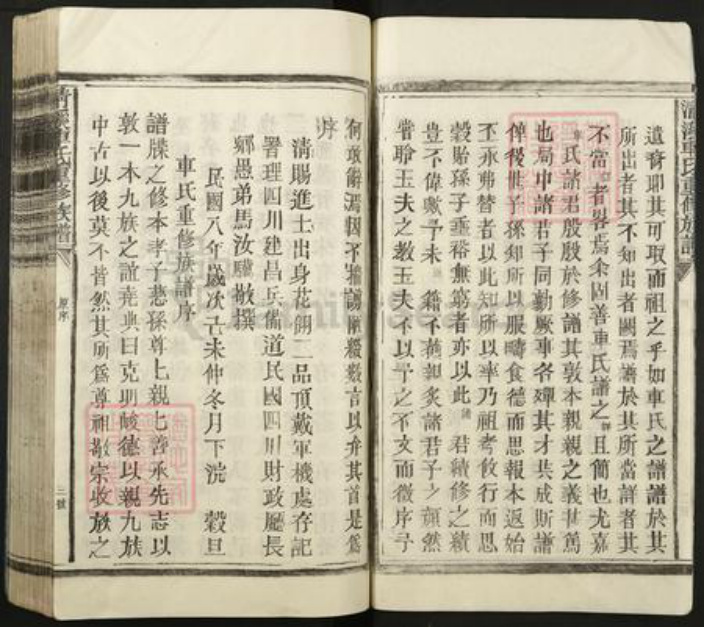 遺裔耶其可取而祖之乎如車氏之譜譜於其
所出者其不知出者闕焉譜於其所當詳者其
不當者畧焉余固善車氏譜之且簡也尤嘉
氏諸君殷殷於修譜其敦本親親之義甚篤
也局中諸君子同勤厥事各殫其才共成斯譜
俾後世子孫知所以服疇食德而思報本返始
丕承弗替者以此知所以率乃祖考攸行而思
穀貽孫子垂裕無窮者亦以此諸君續修之績
豈不偉歟予未獲親炙諸君子之顏然
嘗聆玉夫之教玉夫不以予之不文而徵序于
何敢辭爰因不揣謭陋綴數言以弁其首是為
序
清賜進士出身花翎二品頂戴軍機處存記
署理四川建昌兵備道民國四川財政廳長
鄉愚弟馬汝驥敬撰
民國八年歲次己未仲冬月下浣 穀旦
車氏重修族譜序
譜牒之修本孝子慈孫尊上親上善承先志以
敦一本九族之誼堯典曰克明峻德以親九族
中古以後莫不皆然其所為尊祖敬宗收族之
車氏重修族譜
原序
三號